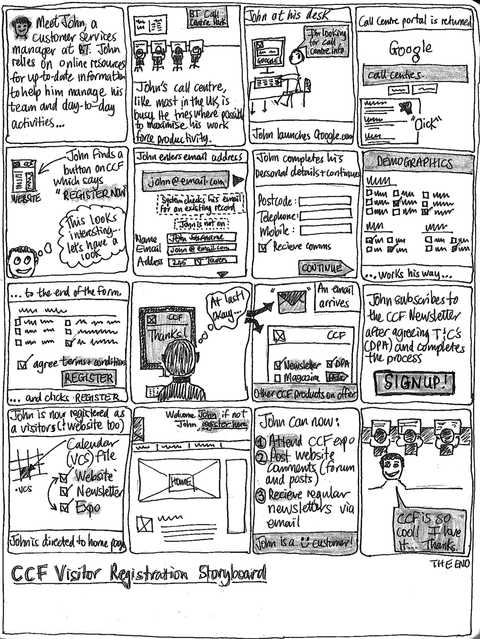 Meet John, a
customer services
manager at BT. John
relies on online resources
for up-to-date information
to help him manage his
team and day-to-day
activities...
BT Call
Centre Hub
John's call centre,
like most in the UK is
busy. He tries where possible
to maximise his work
force productivity.
John at his desk
I'm looking
for call
centre info
GOOGLE
John launches Google.com
Call Centre portal is returned
Google
call centres
"Click"
John finds a
button on CCF
which says
"REGISTER NOW"
WEBSITE
This looks
interesting...
let's have a
look
John enters email address
john@email.com
System checks his email
for an existing record
John is not on
Name
Email John@email.com
Address
John completes his
personal details + continues
Postcode:
Telephone:
Mobile:
Recieve comms
CONTINUE
DEMOGRAPHICS
...works his way...
...to the end of the form.
agree terms + conditions
REGISTER
...and clicks REGISTER
CCF
Thanks!
At last!
okay...
"An email
arrives
CCF
Newsletter DPA
Magazine
Other CCF products on offer
John subscribes to
the CCF Newsletter
after agreeing T&C's
(DPA) and completes
the process
SIGN UP!
John is now registered as
a visitors (+ website too)
Calendar
(VCS) file
.vcs
Website
Newsletter
Expo
John is directed to home page
Welcome John if not
John, register here
HOME
John can now:
1 Attend CCF expo
2 Post website
comments (forum
and posts)
3 Recieve regular
newsletters via
email
John is a customer!
CCF is so
cool! I love
it... Thanks.
THE END
CCF Visitor Registration Storyboard